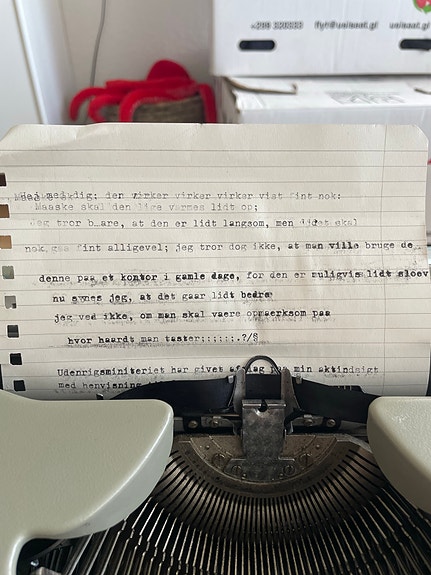 +299 320333 fly@usisaat.gl usisaat.gl
Hej med dig: den virker virker virker vist fint nok:
Maaske skal den lige varmes lidt op;
jeg tror b..are, at den er lidt langsom, men det skal
nok gaa fint alligevel; jeg tror dog ikke, at man ville bruge de
denne paa et kontor i gamle dage, for den er muligvis lidt sloev
nu synes jeg, at det gaar lidt bedre
jeg ved ikke, om man skal vaere opmaerksom paa
hvor haardt man taster::::::.?/§
Udenrigsminiteriet har givet afslag paa min aktindsigt
med henvisning